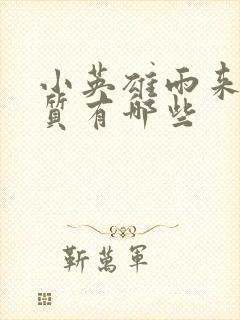 小英雄雨来
質有哪些
靳萬軍